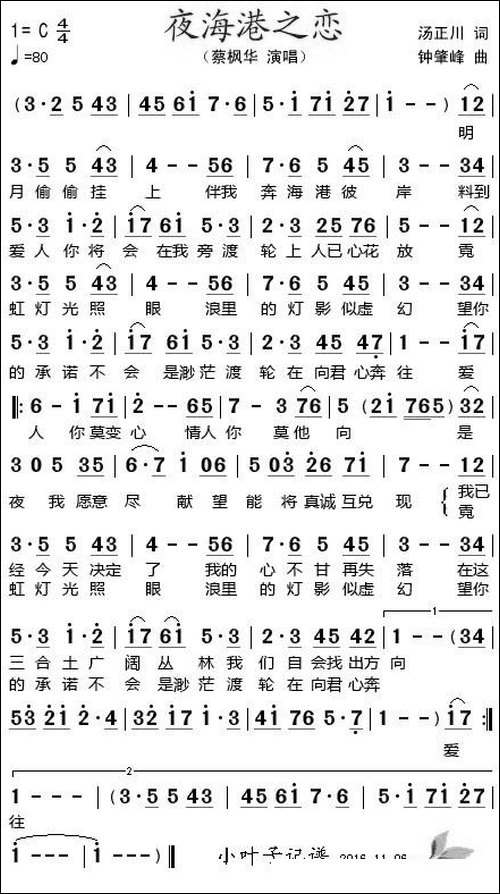 夜海港之恋
1= C 4/4
♩=80
（蔡枫华 演唱）
汤正川 词
钟肇峰 曲
(3·2 5 43 | 45 6i 7·6 | 5·i 7i 27 | i - - ) 12
明
3·5 5 43 | 4 - - 56 | 7·6 5 45 | 3 - - 34 |
月 偷 偷 挂 上 伴我 奔 海 港 彼 岸 料到
5·3 i·2 | i7 6i 5·3 | 2·3 25 76 | 5 - - 34 |
爱 人 你 将 会 在我 旁 渡 轮 上 人已 心花 放 霓
3·5 5 43 | 4 - - 56 | 7·6 5 45 | 3 - - 34 |
虹 灯 光 照 眼 浪里 的 灯 影 似虚 幻 望你
5·3 i·2 | i7 6i 5·3 | 2·3 45 47 | 1 - - i7 |
的 承 诺 不 会 是渺 茫 渡 轮 在 向君 心奔 往 爱
‖: 6 - i 7i | 2 - - 65 | 7 - 3 76 | 5 (2i 765) 32 |
人 你 莫变 心 情人 你 莫他 向 是
3 0 5 35 | 6·7 i 06 | 5 03 26 7i | 7 - - 12
夜 我 愿意 尽 献 望 能 将 真诚 互兑 现 { 我已
霓
3·5 5 43 | 4 - - 56 | 7·6 5 45 | 3 - - 34 |
经 今 天 决定 了 我的 心 不 甘 再失 落 在这
虹 灯 光 照 眼 浪里 的 灯 影 似虚 幻 望你
1
5·3 i·2 | i7 6i 5·3 | 2·3 45 42 | 1 - - (34 |
三 合 土 广 阔 丛 林 我 们 自 会找 出方 向
的 承 诺 不 会 是渺 茫 渡 轮 在 向君 心奔
53 2i 2·4 | 32 17 1·3 | 41 76 5·7 | 1 - - ) i7 :‖
爱
2
1 - - - | (3·5 5 43 | 45 6i 7·6 | 5·i 7i 27 |
往
i - - - | i - - )‖
小叶子记谱 2016-11-06